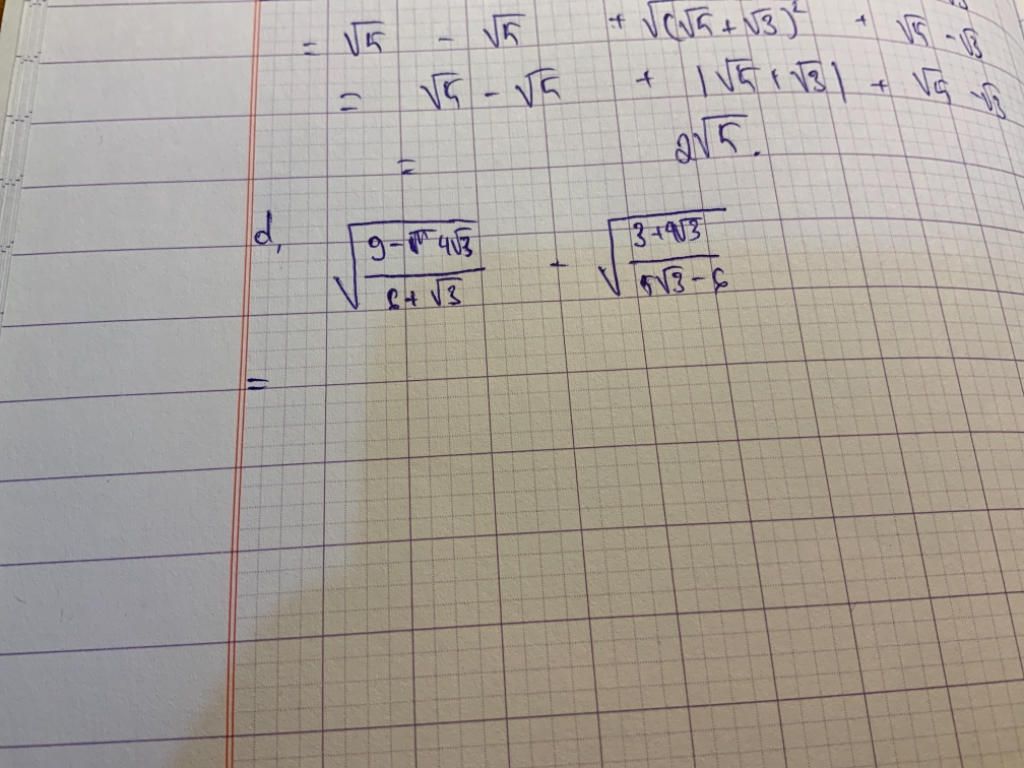 = √5 - √5 + √(√5 + √3)² + √5 - √3
= √5 - √5 + |√5 + √3| + √5 - √3
= 2√5.
d, √((9 - 4√3)/(6 + √3)) - √((3 + 4√3)/(5√3 - 6))
=